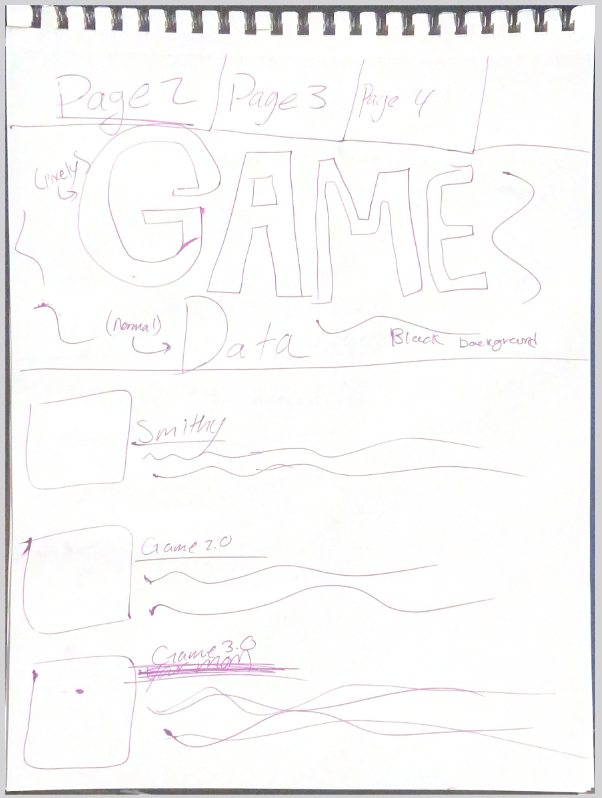 Page 2 Page 3 Page 4
(pixely)
GAME
(normal)
Data
Black background
Smithy
Game 2.0
Game 3.0